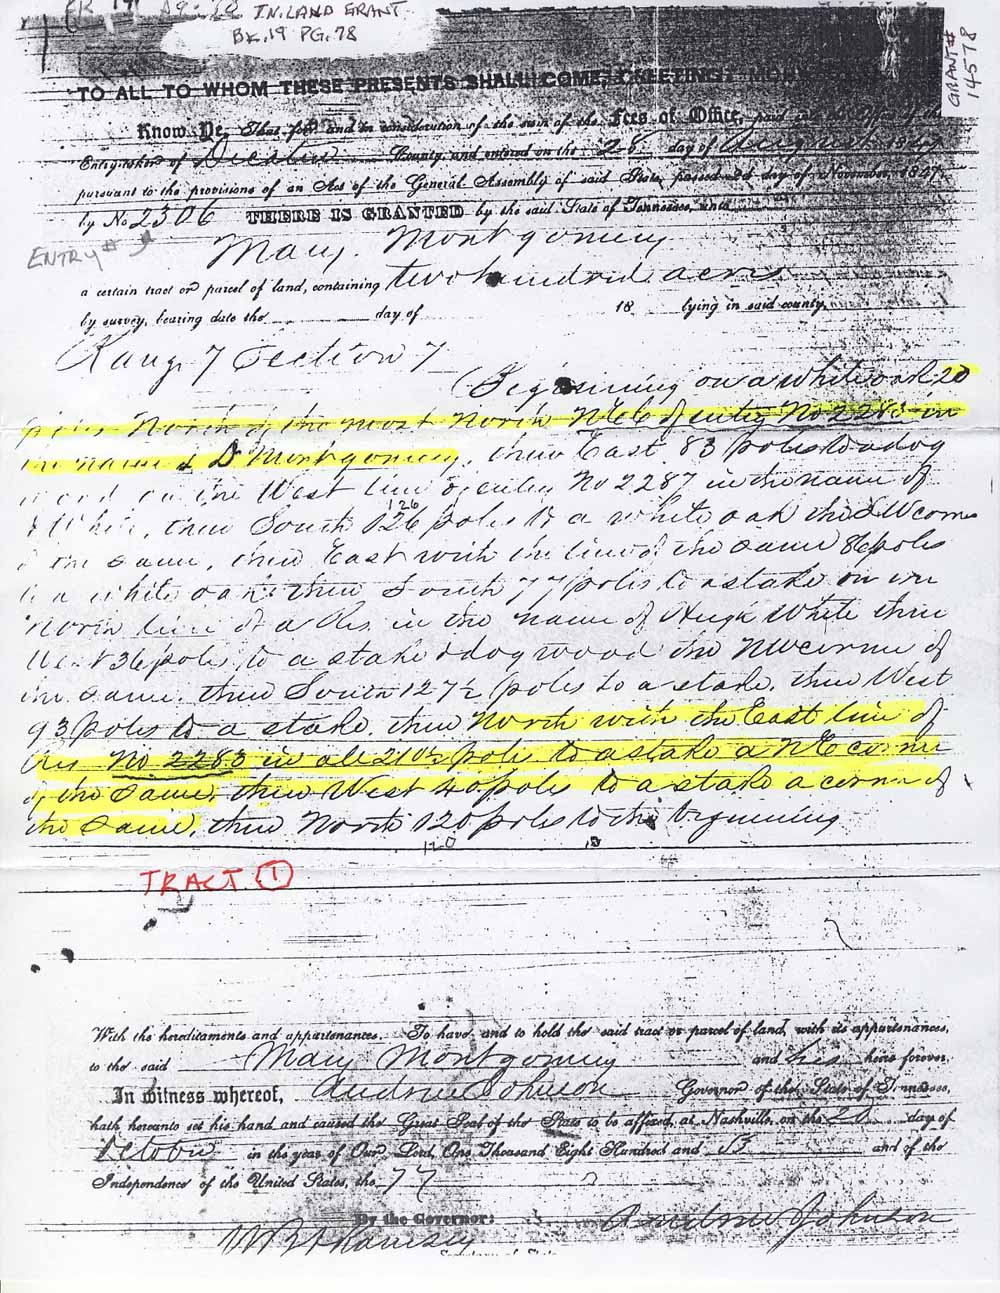 TN. LAND GRANT
BK. 19 PG. 78
GRANT #
14578
TO ALL TO WHOM THESE PRESENTS SHALL COME, GREETING:
Know Ye, That for and in consideration of the sum of the Fees of Office, paid into the Office of the
Entry-taker of Decatur County, and entered on the 26 day of August
pursuant to the provisions of an Act of the General Assembly of said State, passed 2d day of November, 1847,
by No 2306 THERE IS GRANTED by the said State of Tennessee, unto
ENTRY #
Mary Montgomery
a certain tract or parcel of land, containing two hundred acres
by survey, bearing date the day of 18 lying in said county,
Rang. 7 Section 7
Beginning on a white oak 20
poles North of the most North NEC of entry No 2283 in
the name of D Montgomery, thence East 83 poles to a dog
wood on the West line of entry No 2287 in the name of
White, thence South 126 126 poles to a white oak the SW corner
of the same, thence East with the line of the same 86 poles
to a white oak thence South 77 poles to a stake on the
North line of a in the name of Hugh White thence
West 36 poles to a stake & dogwood the NW corner of
the same, thence South 127½ poles to a stake, thence West
93 poles to a stake, thence North with the East line of
No 2283 in all 210½ poles to a stake a NE corner
of the same, thence West 40 poles to a stake a corner of
the same, thence North 120 poles to the beginning
120
TRACT 1
With the hereditaments and appurtenances. To have and to hold the said tract or parcel of land, with its appurtenances,
to the said Mary Montgomery and his heirs forever.
In witness whereof, Andrew Johnson Governor of the State of Tennessee,
hath hereunto set his hand and caused the Great Seal of the State to be affixed, at Nashville, on the 20 day of
October in the year of Our Lord, One Thousand Eight Hundred and 53 and of the
Independence of the United States, the 77
By the Governor: Andrew Johnson
Secretary of State